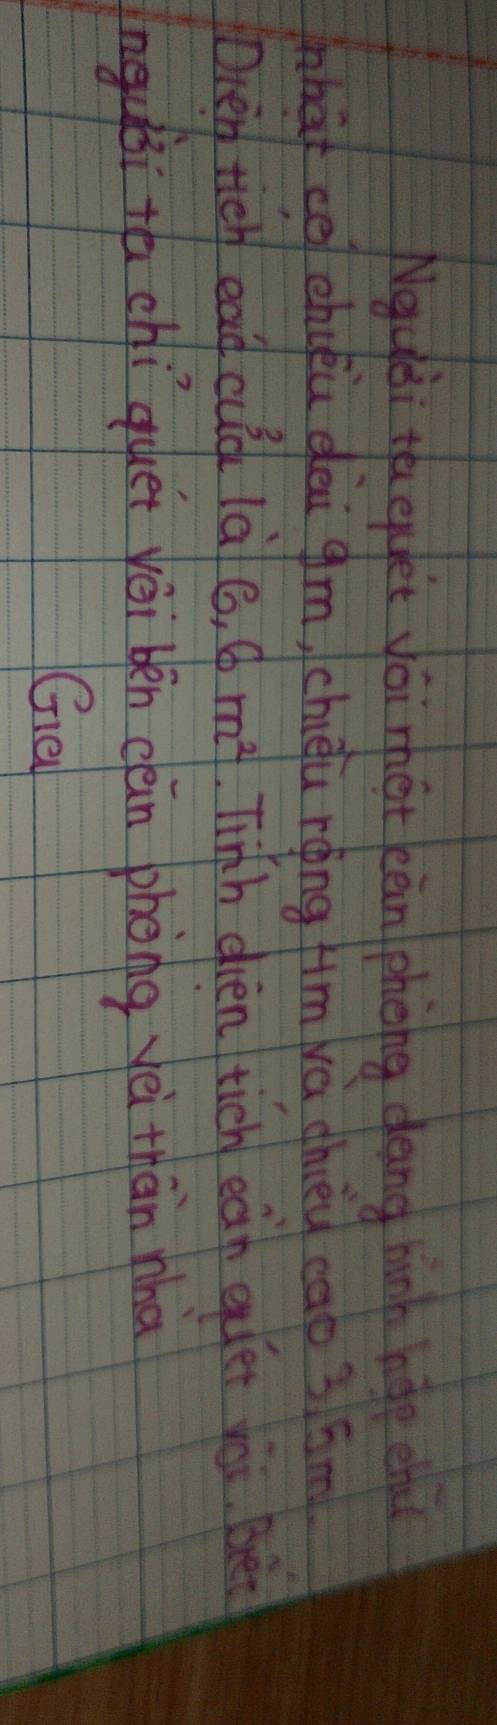 Người ta quét vôi một căn phòng dạng hình hộp chữ
nhật có chiều dài 9m, chiều rộng 4m và chiều cao 3,5m.
Diện tích các cửa là 6,6 m². Tính diện tích cần quét vôi. Biết
người ta chỉ quét vôi bên căn phòng và trần nhà
Giai